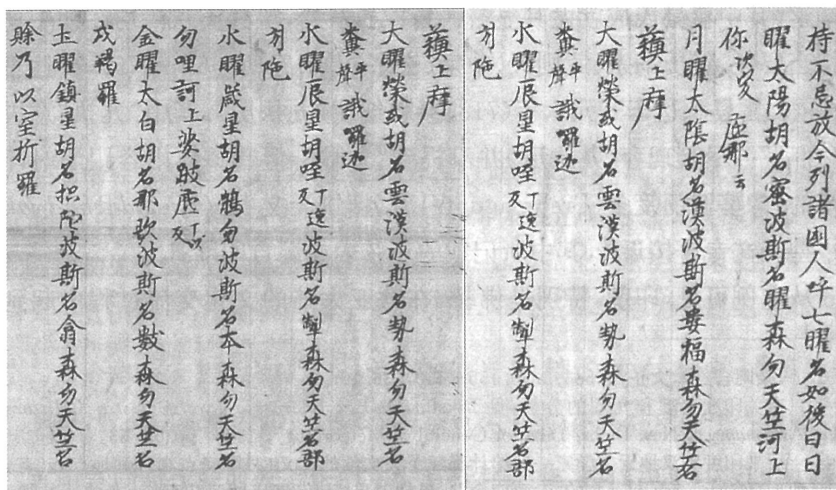 持不忌放今列諸囯人呼七曜名如後日日
曜太陽胡名蜜波斯名曜森勿天竺河上
你 底耶云
月曜太陰胡名漠波斯名婁禍森勿天竺名
蘓上摩
大曜熒或胡名雲漢波斯名勢森勿天竺名
糞平聲誐囉迦
水曜辰星胡咥丁逸反波斯名掣森勿天竺名部
引陁
蘓上摩
大曜熒或胡名雲漢波斯名勢森勿天竺名
糞平聲誐囉迦
水曜辰星胡咥丁逸反波斯名掣森勿天竺名部
引陁
水曜歲星胡名鶻勿波斯名本森勿天竺名
勿哩訶上娑跛底丁以反
金曜太白胡名那歇波斯名數森勿天竺名
戍羯羅
土曜鎮星胡名枳院波斯名翕森勿天竺名
賒乃以室折羅